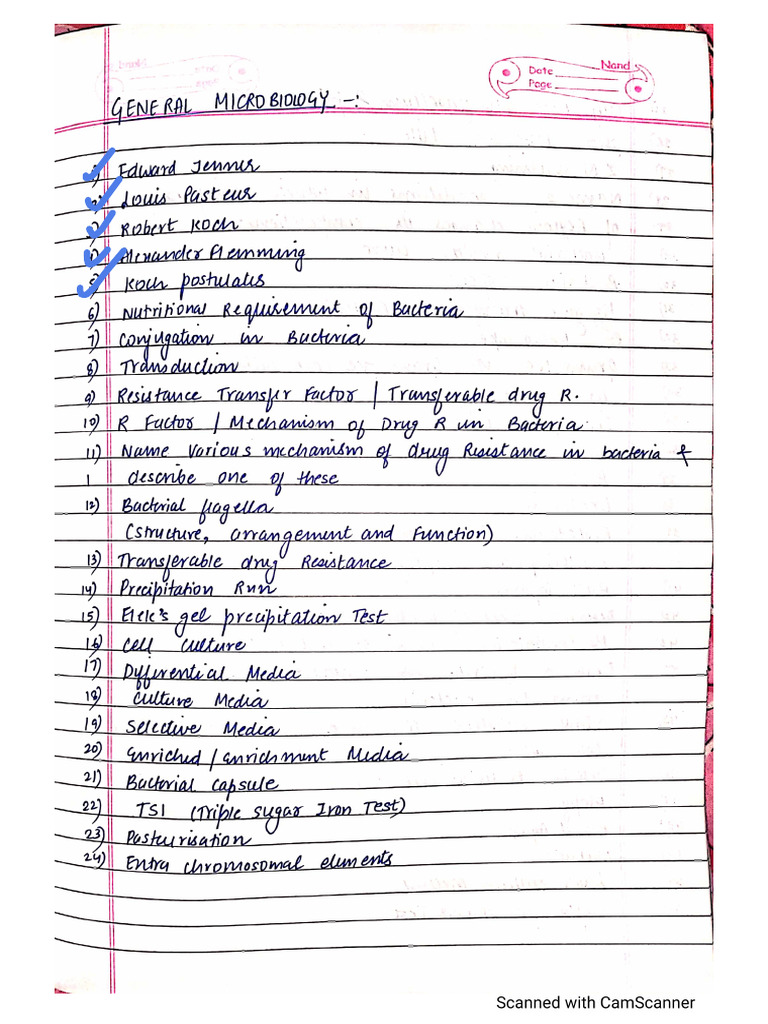 Date
Nand
Page
GENERAL MICROBIOLOGY -:
1) Edward Jenner
2) Louis Pasteur
3) Robert Koch
4) Alexander Flemming
5) Koch postulates
6) Nutritional Requirement of Bacteria
7) Conjugation in Bacteria
8) Transduction
9) Resistance Transfer Factor / Transferable drug R.
10) R Factor / Mechanism of Drug R in Bacteria
11) Name various mechanism of drug Resistance in bacteria &
1 describe one of these
12) Bacterial flagella
(structure, arrangement and Function)
13) Transferable drug Resistance
14) Precipitation Run
15) Elek's gel precipitation Test
16) Cell culture
17) Differential Media
18) Culture Media
19) Selective Media
20) Enriched / enrichment Media
21) Bacterial capsule
22) TSI (Triple sugar Iron Test)
23) Pasteurisation
24) Entra chromosomal elements
Scanned with CamScanner